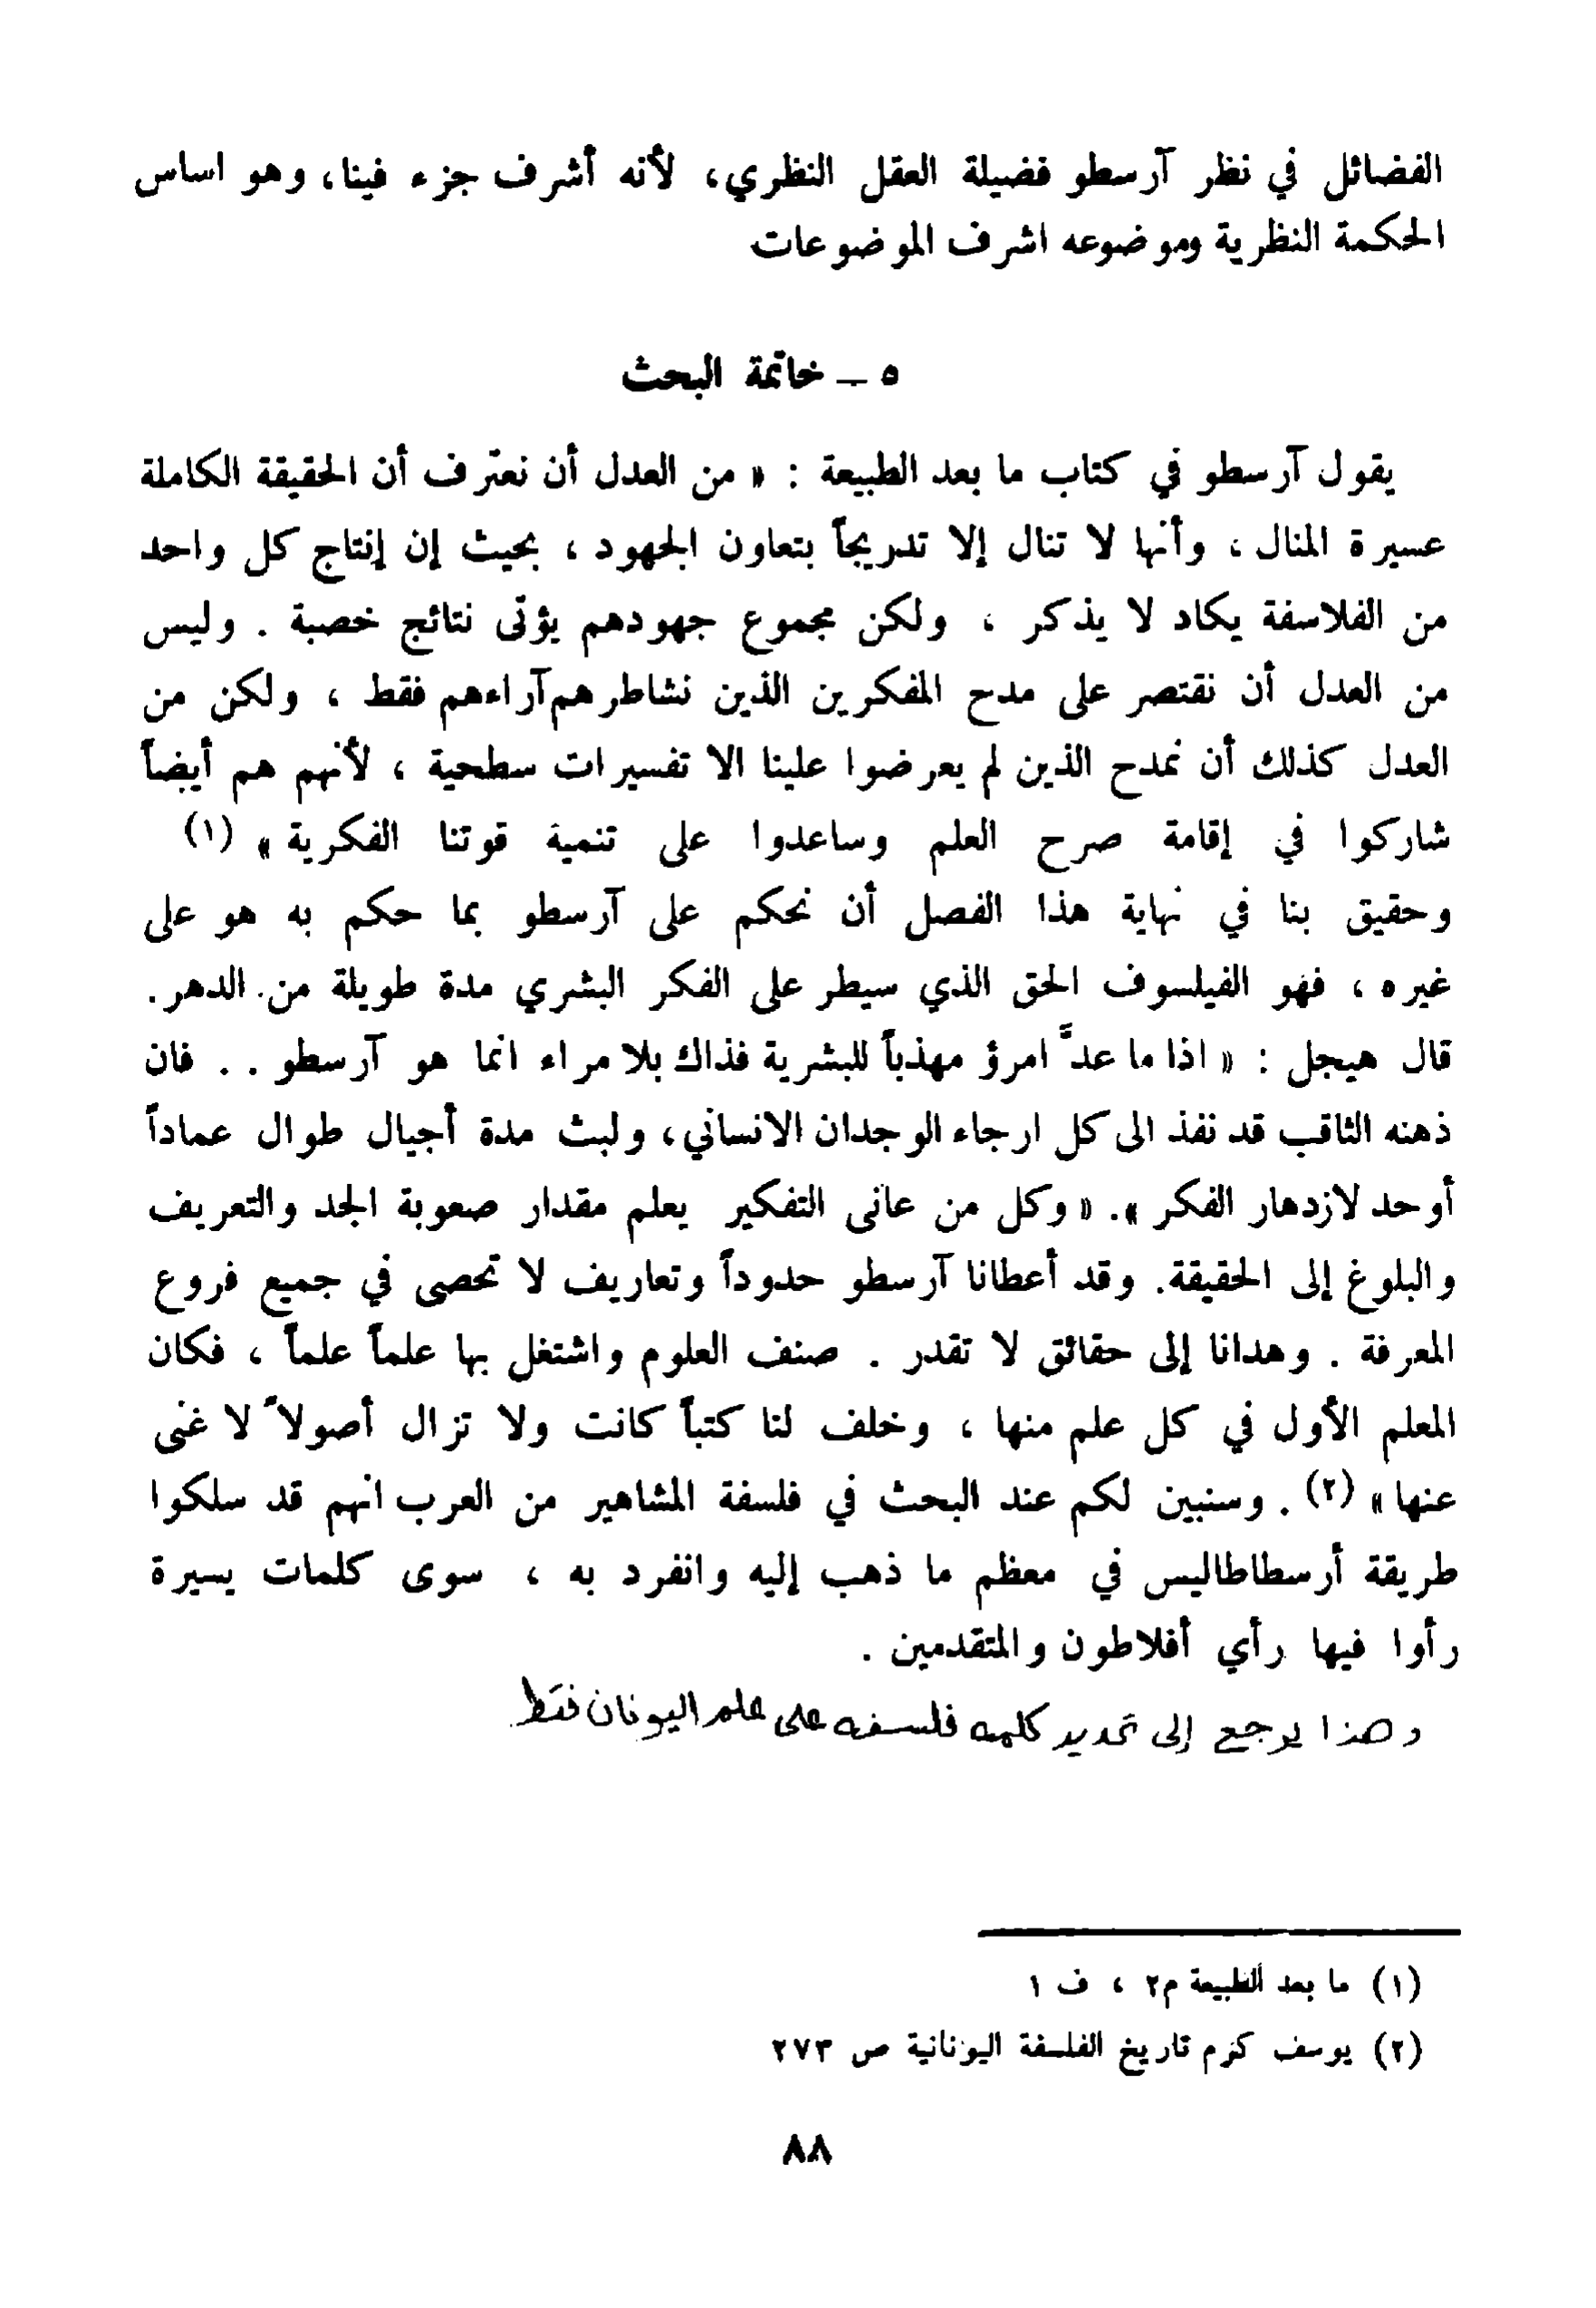 الفضائل في نظر آرسطو فضيلة العقل النظري، لأنه أشرف جزء فينا، وهو اساس
الحكمة النظرية وموضوعه اشرف الموضوعات
٥ – خاتمة البحث
يقول آرسطو في كتاب ما بعد الطبيعة : « من العدل أن نعترف أن الحقيقة الكاملة
عسيرة المنال ، وأنها لا تنال إلا تدريجاً بتعاون الجهود ، بحيث إن إنتاج كل واحد
من الفلاسفة يكاد لا يذكر ، ولكن مجموع جهودهم يؤتى نتائج خصبة . وليس
من العدل أن نقتصر على مدح المفكرين الذين نشاطرهم آراءهم فقط ، ولكن من
العدل كذلك أن نمدح الذين لم يعرضوا علينا الا تفسيرات سطحية ، لأنهم هم أيضاً
شاركوا في إقامة صرح العلم وساعدوا على تنمية قوتنا الفكرية » (١)
وحقيق بنا في نهاية هذا الفصل أن نحكم على آرسطو بما حكم به هو على
غيره ، فهو الفيلسوف الحق الذي سيطر على الفكر البشري مدة طويلة من الدهر.
قال هيجل : « اذا ما عدَّ امرؤ مهذباً للبشرية فذاك بلا مراء انما هو آرسطو . . فان
ذهنه الثاقب قد نفذ الى كل ارجاء الوجدان الانساني، ولبث مدة أجيال طوال عماداً
أوحد لازدهار الفكر ». « وكل من عانى التفكير يعلم مقدار صعوبة الجد والتعريف
والبلوغ إلى الحقيقة. وقد أعطانا آرسطو حدوداً وتعاريف لا تحصى في جميع فروع
المعرفة . وهدانا إلى حقائق لا تقدر . صنف العلوم واشتغل بها علماً علماً ، فكان
المعلم الأول في كل علم منها ، وخلف لنا كتباً كانت ولا تزال أصولاً لا غنى
عنها » (٢) . وسنبين لكم عند البحث في فلسفة المشاهير من العرب انهم قد سلكوا
طريقة أرسطاطاليس في معظم ما ذهب إليه وانفرد به ، سوى كلمات يسيرة
رأوا فيها رأي أفلاطون والمتقدمين .
وهذا يرجع إلى تحديد كلمه فلسفه على علم اليونان فقط
(١) ما بعد الطبيعة م٢ ، ف ١
(٢) يوسف كرم تاريخ الفلسفة اليونانية ص ٢٧٣
٨٨